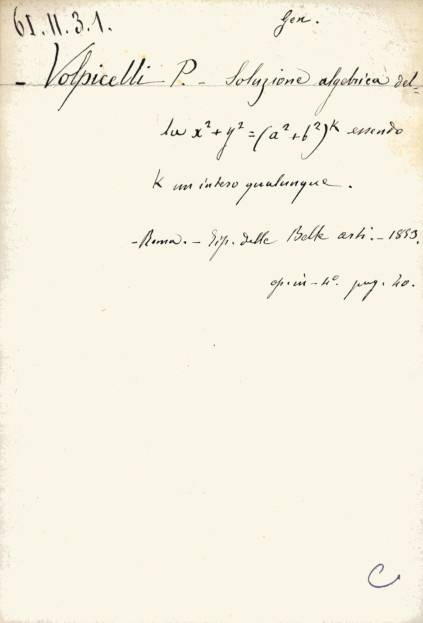 61.II.3.1.
Gen.
- Volpicelli P. - Soluzione algebrica del-
la x²+y²=(a²+b²)ᴷ essendo
K un intero qualunque.
- Roma. - Tip. delle Belle arti. - 1853.
op. in-4º. pag. 40.
C